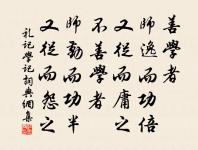 善學者
師逸而功倍
又從而庸之
不善學者
師勤而功半
又從而怨之
礼记学记词典网集